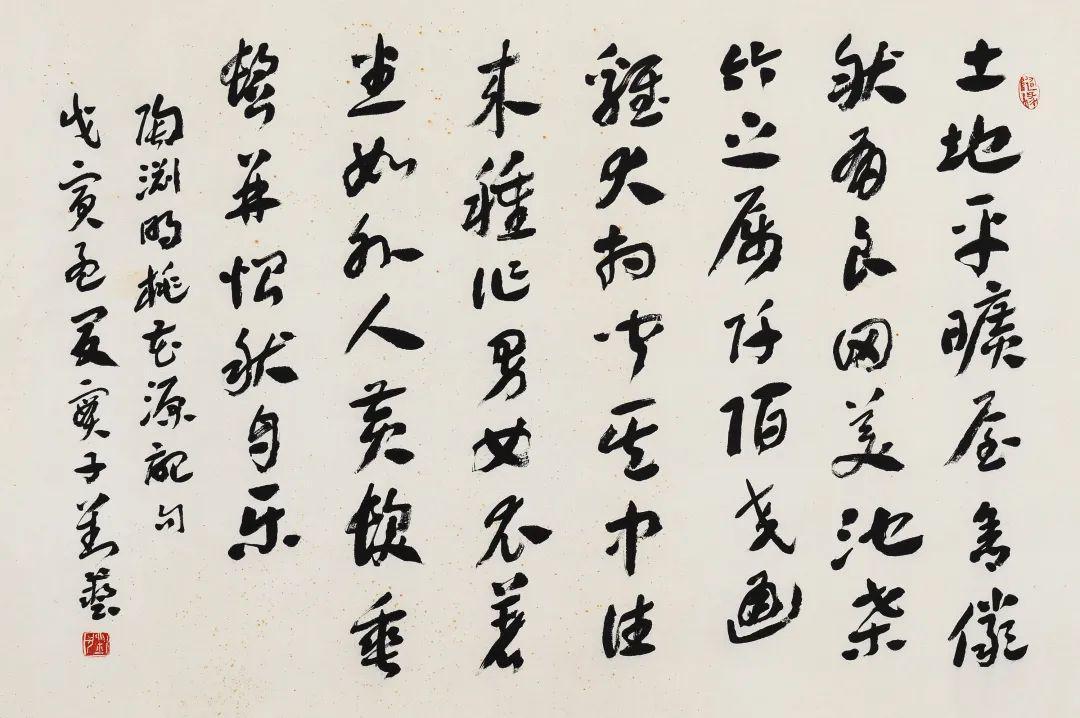 土地平曠屋舍儼
然有良田美池桑
竹之属阡陌交通
雞犬相聞其中往
来種作男女衣著
悉如外人黄髮垂
髫并怡然自乐
陶渊明桃花源記句
戊寅孟夏寅子劉藝